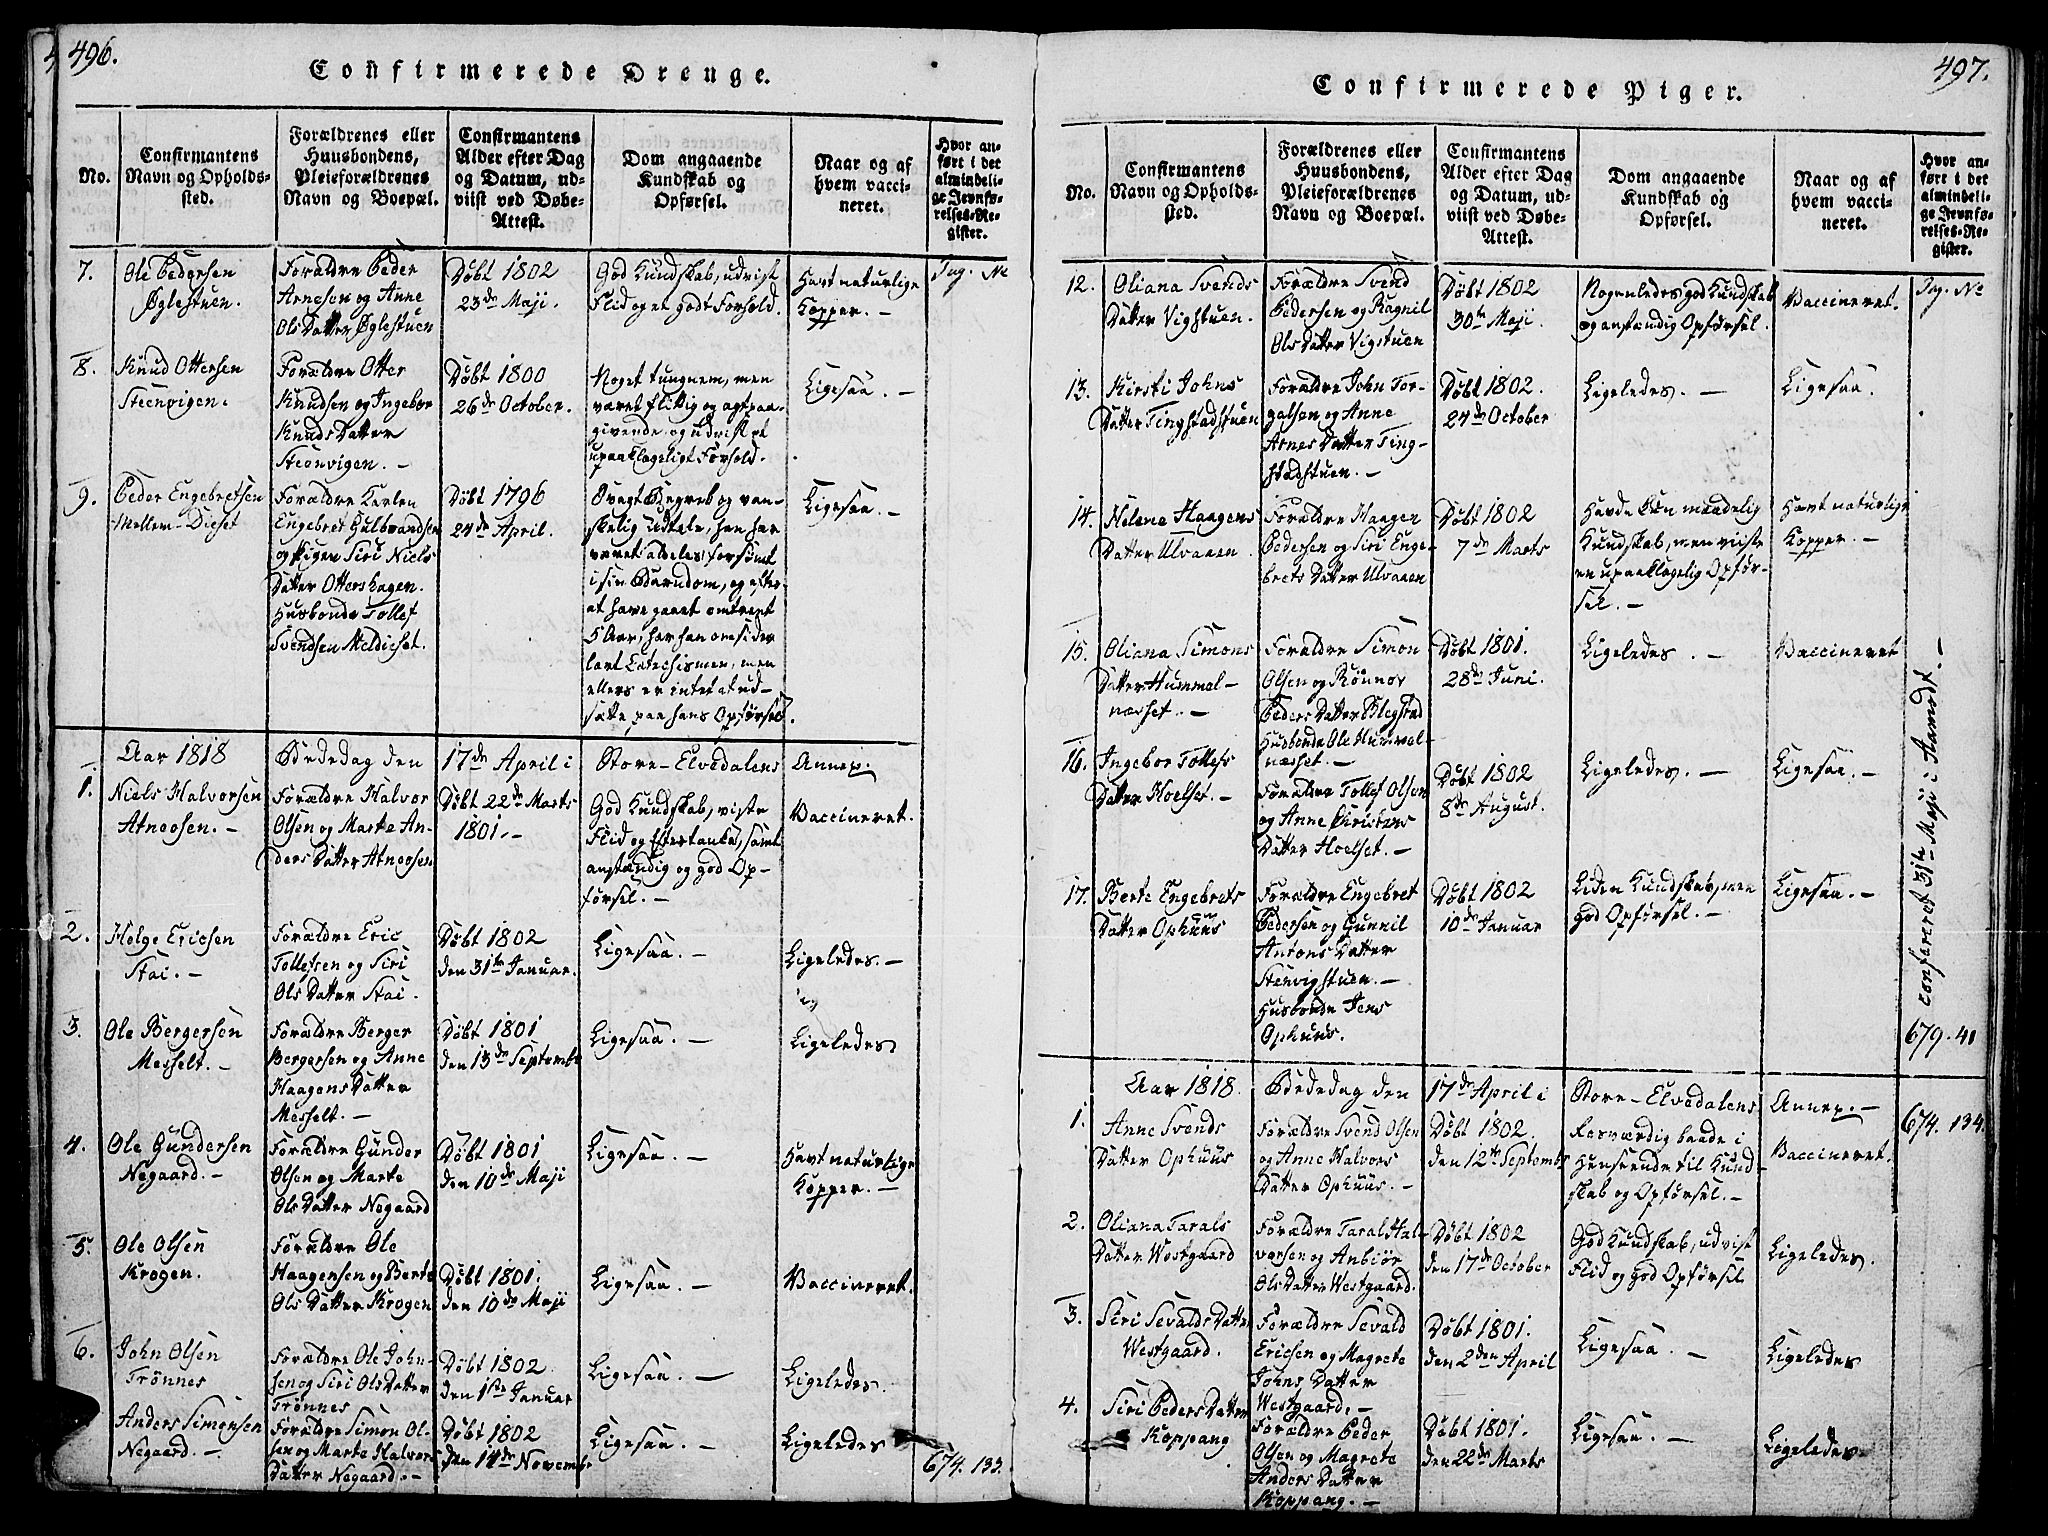 496.
Confirmerede Drenge.
No.
Confirmantens
Navn og Opholds-
sted.
Forældrenes eller
Huusbondens,
Pleieforældrenes
Navn og Boepæl.
Confirmantens
Alder efter Dag
og Datum, ud-
viist ved Døbe-
Attest.
Dom angaaende
Kundskab og
Opførsel.
Naar og af
hvem vacci-
neret.
Hvor an-
ført i det
almindeli-
ge Jevnfø-
relses-Re-
gister.
7.
Ole Pedersen
Øglestuen.
Forældre Peder
Arnesen og Anne
Ols Datter Øglestuen
Døbt 1802
23de Maji.
God Kundskab, udvist
Flid og et godt Forhold.
Havt naturlige
Kopper. –
Pag. No
8.
Knud Ottersen
Steenvigen.
Forældre Otter
Knudsen og Ingebor
Knuds Datter
Steenvigen. –
Døbt 1800
26de October.
Noget tungnem, men
været flittig og agtpaa-
givende og udvist et
upaaklageligt Forhold.
Ligesaa. –
9.
Peder Engebretsen
Mellem-Dieset
Forældre Karlen
Engebret Gulbrandsen
og Pigen Siri Niels
Datter Ottershagen.
Husbonde Tollef
Svendsen Meldieset.
Døbt 1796
24de April.
Svagt Begreb og van-
skelig Udtale, han har
været aldeles forsømt
i sin Barndom, og efter
at have gaaet omtrent
5 Aar, har han omsider
lært Catechismen, men
ellers er intet at ud-
sætte paa hans Opførsel.
Ligesaa. –
Aar 1818 Bededag den 17de April i Store-Elvedalens Annex.
1.
Niels Halvorsen
Atneosen. –
Forældre Halvor
Olsen og Marte An-
ders Datter Atneosen
Døbt 22de Marts
1801. –
God Kundskab, viste
Flid og Eftertanke, samt
anstændig og god Op-
førsel. –
Vaccineret.
2.
Helge Ericsen
Stai. –
Forældre Eric
Tollefsen og Siri
Ols Datter Stai.
Døbt 1802
den 31te Januar.
Ligesaa. –
Ligeledes. –
3.
Ole Bergersen
Messelt. –
Forældre Berger
Bergersen og Anne
Haagens Datter
Messelt. –
Døbt 1801
den 13de Septembr
Ligesaa. –
Ligeledes
4.
Ole Gundersen
Negaard. –
Forældre Gunder
Olsen og Marte
Ols Datter Negaard
Døbt 1801
den 10de Maji
Ligesaa. –
Havt naturlige
Kopper. –
5.
Ole Olsen
Krogen.
Forældre Ole
Haagensen og Berte
Ols Datter Krogen
Døbt 1801.
den 10de Maji
Ligesaa. –
Vaccineret.
6.
John Olsen
Trønnes
Forældre Ole John-
sen og Siri Ols Datter
Trønnes
Døbt 1802
den 1ste Januar
Ligesaa. –
Ligeledes.
Anders Simonsen
Negaard. –
Forældre Simon Ol-
sen og Marte Halvors
Datter Negaard. –
Døbt 1802
den 14de Novembr
Ligesaa. –
Ligeledes
674. 133.
497.
Confirmerede Piger.
No.
Confirmantens
Navn og Opholds-
sted.
Forældrenes eller
Huusbondens,
Pleieforældrenes
Navn og Boepæl.
Confirmantens
Alder efter Dag
og Datum, ud-
viist ved Døbe-
Attest.
Dom angaaende
Kundskab og
Opførsel.
Naar og af
hvem vacci-
neret.
Hvor an-
ført i det
almindeli-
ge Jevnfø-
relses-Re-
gister.
12.
Oliana Svends
Datter Vigstuen.
Forældre Svend
Pedersen og Ragnil
Ols Datter Vigstuen
Døbt 1802
30te Maji.
Nogenledes god Kundskab
og anstændig Opførsel.
Vaccineret.
Pag. No
13.
Kirsti Johns
Datter Tingstadstuen
Forældre John Tor-
galsen og Anne
Arnes Datter Ting-
stadstuen. –
Døbt 1802.
24de October
Ligeledes. –
Ligesaa.
14.
Helena Haagens
Datter Ulvaaen
Forældre Haagen
Pedersen og Siri Enge-
brets Datter Ulvaaen
Døbt 1802
7de Marts
Havde kun maadelig
Kundskab, men viiste
en upaaklagelig Opfør-
sel. –
Havt naturlige
Kopper. –
15.
Oliana Simons
Datter Hummel-
næsset. –
Forældre Simon
Olsen og Rønnov
Peders Datter Blegstad
Husbonde Ole Hummel-
næsset. –
Døbt 1801.
28de Juni.
Ligeledes. –
Vaccineret
16.
Ingebor Tollefs
Datter Hoelset. –
Forældre Tollef Olsen
og Anne Christens
Datter Hoelset. –
Døbt 1802
8de August.
Ligeledes. –
Ligesaa. –
17.
Berte Engebrets
Datter Ophuus
Forældre Engebret
Pedersen og Gunnil
Antons Datter
Stenvigstuen. –
Husbonde Jens
Ophuus.
Døbt 1802
10de Januar
Liden Kundskab, men
god Opførsel. –
Ligesaa. –
confareret 31te Maji i Aamodt. –
679. 41
Aar 1818. Bededag den 17de April i Store-Elvedalens Annex. –
1.
Anne Svends
Datter Ophuus
Forældre Svend Olsen
og Anne Halvors
Datter Ophuus. –
Døbt 1802.
den 12te Septembr
Rosværdig baade i
Henseende til Kund-
skab og Opførsel. –
Vaccineret.
674. 134.
2.
Oliana Tarals
Datter Westgaard
Forældre Taral Hal-
vorsen og Anbiør
Ols Datter Westgaard.
Døbt 1802
den 17de October
God Kundskab, udvist
Flid og god Opførsel
Ligeledes.
3.
Siri Sevalds Datter
Westgaard.
Forældre Sevald
Ericsen og Magrete
Johns Datter
Westgaard. –
Døbt 1801.
den 2den April
Ligesaa. –
Ligeledes
4.
Siri Peders Datter
Koppang
Forældre Peder
Olsen og Magrete
Anders Datter
Koppang. –
Døbt 1801.
den 22de Marts
Ligesaa. –
Ligeledes.